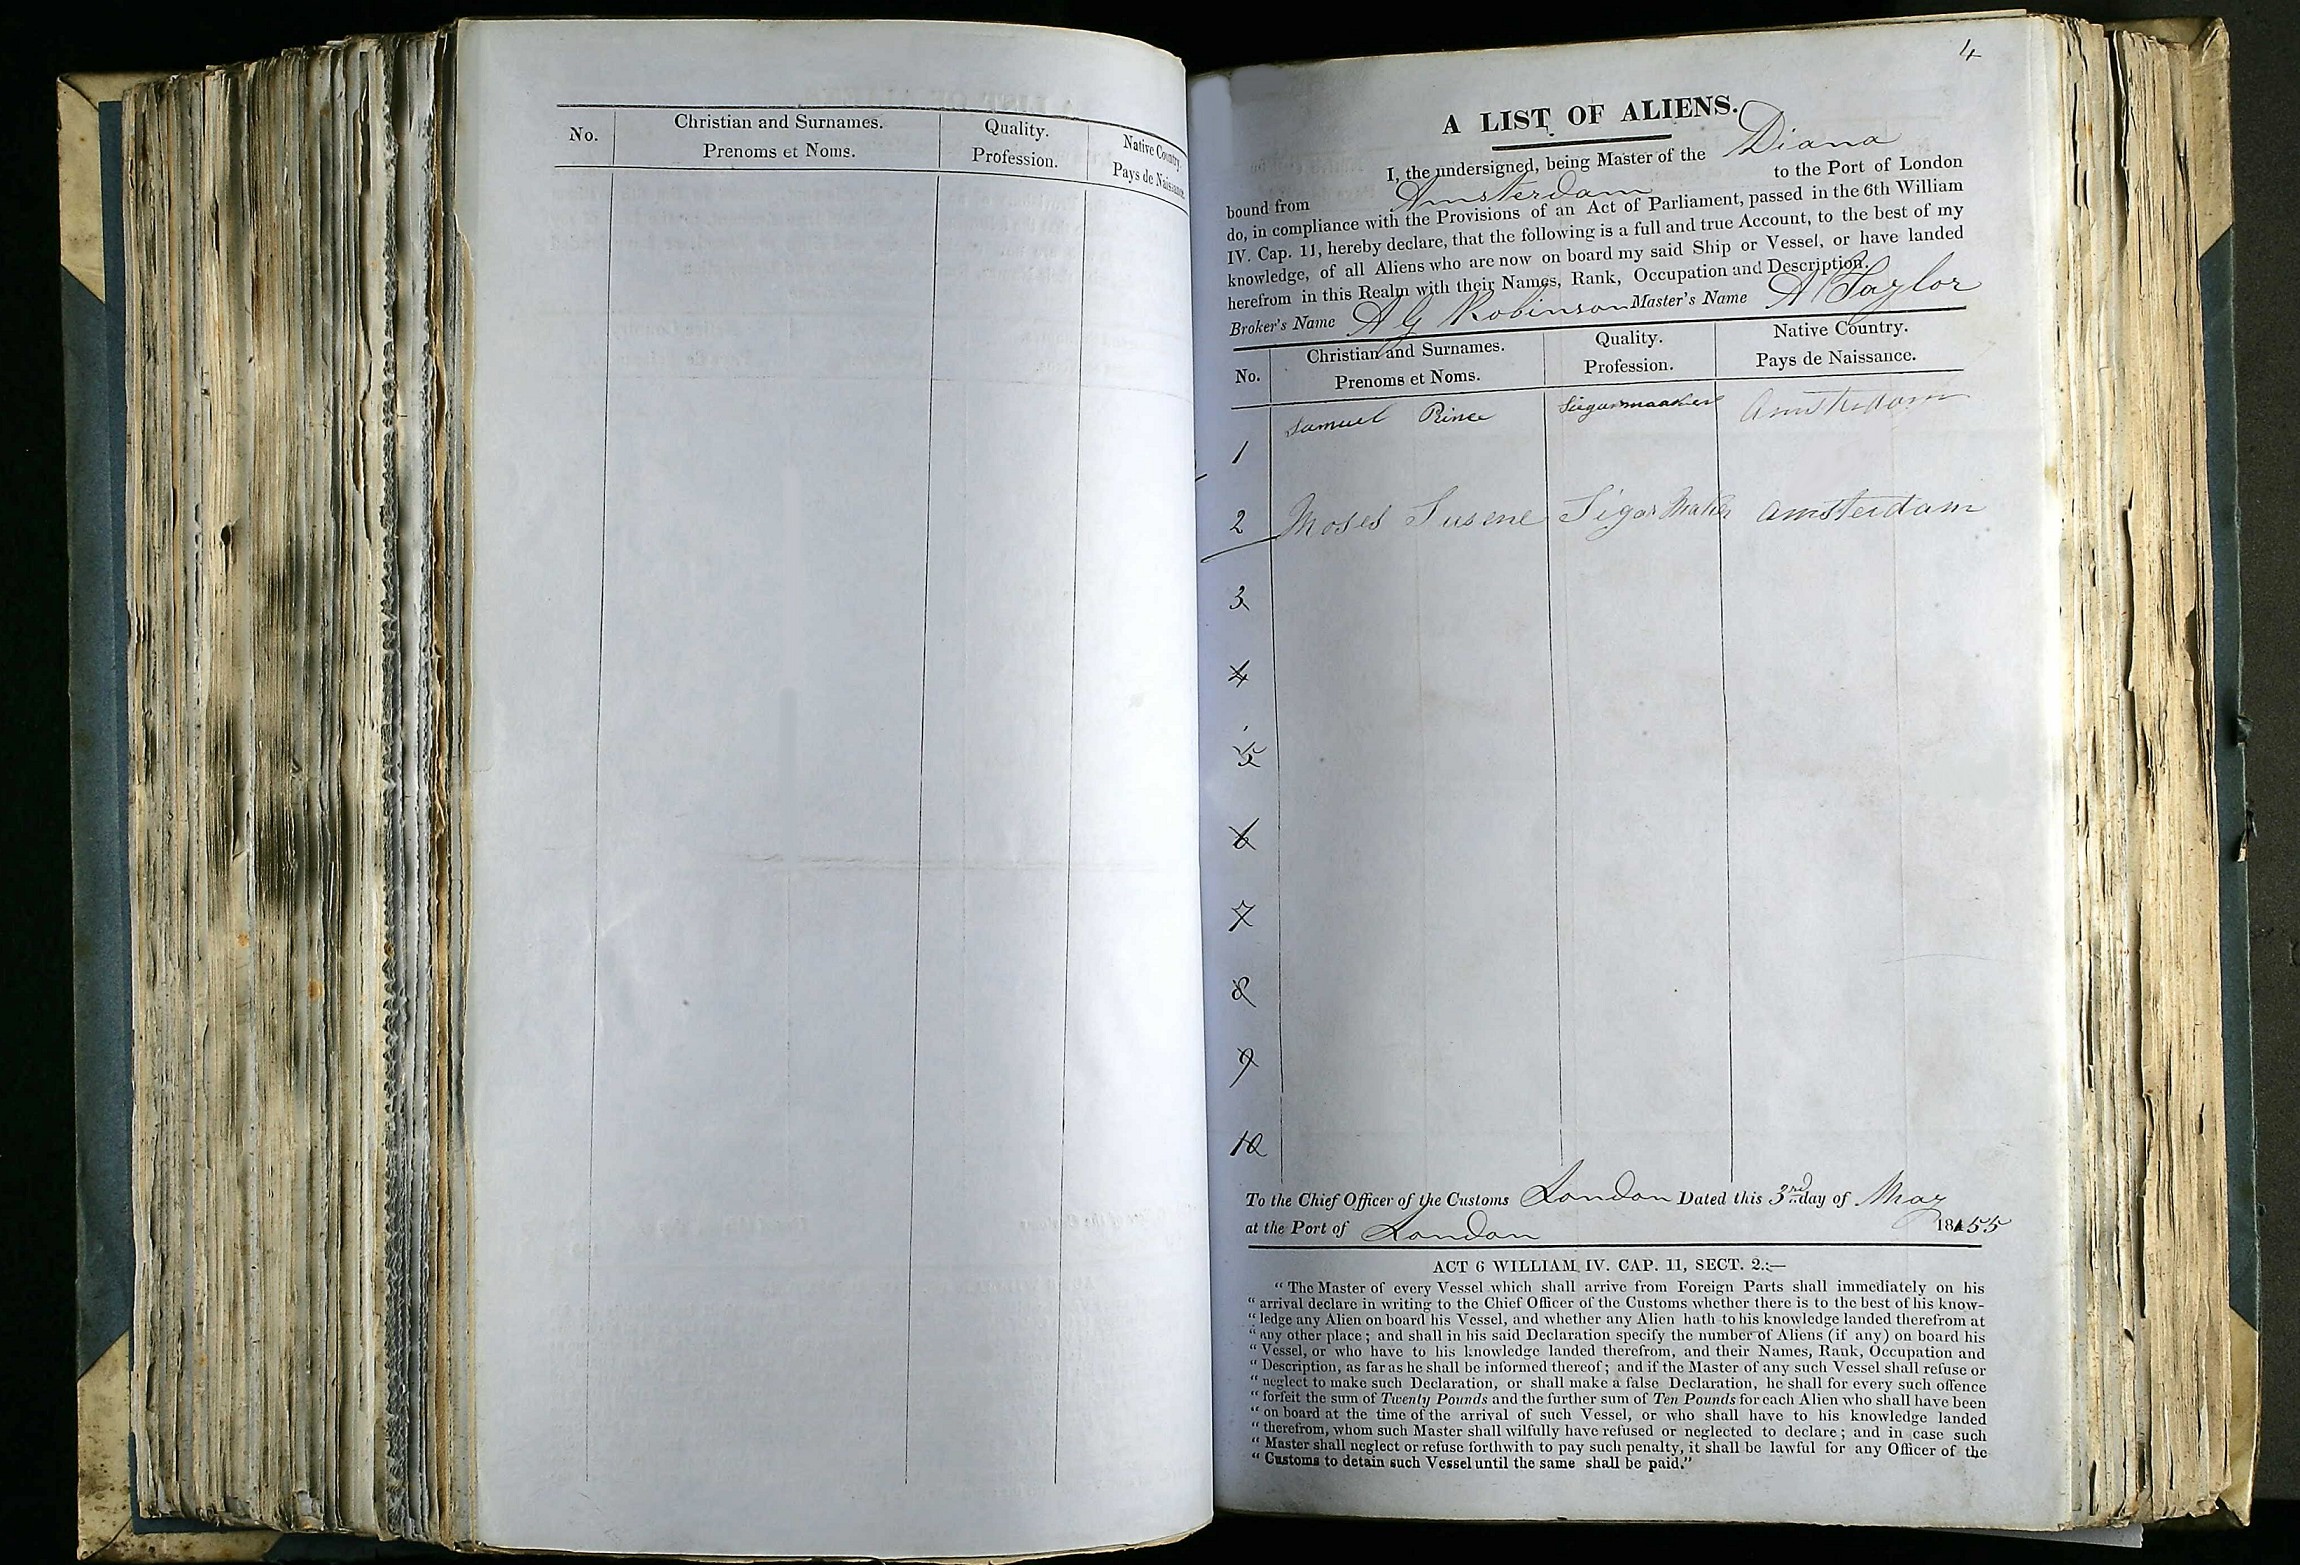 No.
Christian and Surnames.
Prenoms et Noms.
Quality.
Profession.
Native Country.
Pays de Naissance.
4
A LIST OF ALIENS.
I, the undersigned, being Master of the Diana
bound from Amsterdam to the Port of London
do, in compliance with the Provisions of an Act of Parliament, passed in the 6th William
IV. Cap. 11, hereby declare, that the following is a full and true Account, to the best of my
knowledge, of all Aliens who are now on board my said Ship or Vessel, or have landed
herefrom in this Realm with their Names, Rank, Occupation and Description.
Broker's Name A G Robinson Master's Name A Taylor
No.
Christian and Surnames.
Prenoms et Noms.
Quality.
Profession.
Native Country.
Pays de Naissance.
1 Samuel Prince Siegarmaaker Amsterdam
2 Moses Sigar Maker Amsterdam
3
4
5
6
7
8
9
10
To the Chief Officer of the Customs London Dated this 3rd day of May
at the Port of London 1855
ACT 6 WILLIAM IV. CAP. 11, SECT. 2.:—
“ The Master of every Vessel which shall arrive from Foreign Parts shall immediately on his
“ arrival declare in writing to the Chief Officer of the Customs whether there is to the best of his know-
“ ledge any Alien on board his Vessel, and whether any Alien hath to his knowledge landed therefrom at
“ any other place ; and shall in his said Declaration specify the number of Aliens (if any) on board his
“ Vessel, or who have to his knowledge landed therefrom, and their Names, Rank, Occupation and
“ Description, as far as he shall be informed thereof ; and if the Master of any such Vessel shall refuse or
“ neglect to make such Declaration, or shall make a false Declaration, he shall for every such offence
“ forfeit the sum of Twenty Pounds and the further sum of Ten Pounds for each Alien who shall have been
“ on board at the time of the arrival of such Vessel, or who shall have to his knowledge landed
“ therefrom, whom such Master shall wilfully have refused or neglected to declare ; and in case such
“ Master shall neglect or refuse forthwith to pay such penalty, it shall be lawful for any Officer of the
“ Customs to detain such Vessel until the same shall be paid.”